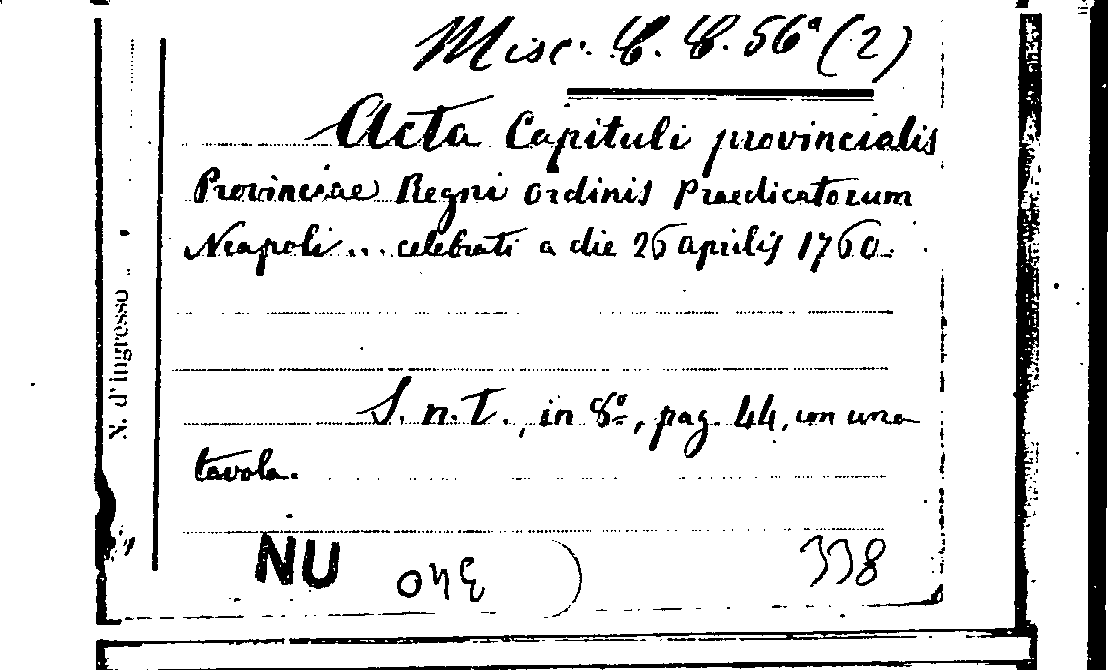 Misc. C. C. 56ª (2)
Acta Capituli provincialis
Provinciae Regni Ordinis Praedicatorum
Neapoli... celebrati a die 26 aprilis 1760.
S. n. T., in 8º, pag. 44, con una
tavola.
NU
338
N. d'ingresso